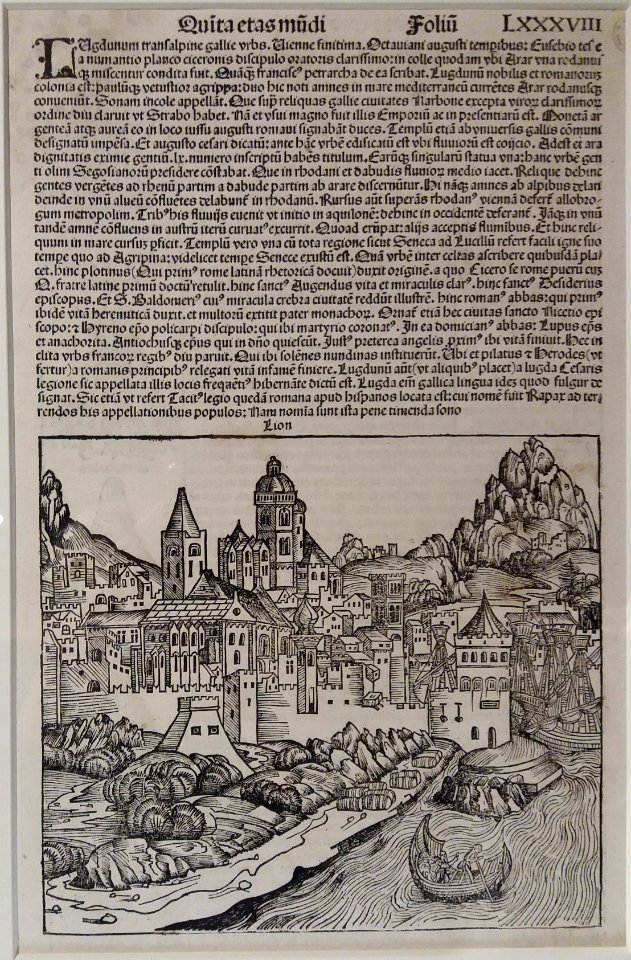 Quīta etas mūdi Foliū LXXXVIII
LUgdunum transalpine gallie vrbs. Uienne finitima. Octauiani augusti temporibus: Eusebio teste
a numantio planco ciceronis discipulo oratoris clarissimo: in colle quodam vbi Arar vna rodanui
qꝫ miscentur condita fuit. Quāqꝫ francisc⁹ petrarcha de ea scribat. Lugdunū nobilis et romanorum
colonia est: paulūqꝫ vetustior agrippa: duo hic noti amnes in mare mediterraneū currētes Arar rodanusqꝫ
conueniūt. Sonam incole appellāt. Que sup reliquas gallie ciuitates Narbone excepta viroꝝ clarissimoꝝ
ordine diu claruit vt Strabo habet. Nā et vsui magno fuit illis Emporiū ac in presentiarū est. Monetā ar
genteā atqꝫ aureā eo in loco iussu augusti romani signabāt duces. Templū etiā ab vniuersis gallis cōmuni
designatū impēsa. Et augusto cesari dicatū: ante hāc vrbē edificatū est vbi fluuiorū est coijcio. Adest et ara
dignitatis eximie gentiū. lx. numero inscriptū habēs titulum. Earūqꝫ singularū statua vna: hanc vrbē gen
ti olim Segosianorū presidere cōstabat. Que in rhodani et dabudis fluuioꝝ medio iacet. Relique dehinc
gentes vergētes ad rhenū partim a dabude partim ab arare discernūtur. Hi nāqꝫ amnes ab alpibus delati
deinde in vnū alueū cōfluētes delabunt in rhodanū. Rursus aūt superās rhodan⁹ viennā defert allobro
gum metropolim. Trib⁹ his fluuijs euenit vt initio in aquilonē: dehinc in occidentē deferant. Jāqꝫ in vnū
tandē amnē cōfluens in austrū iterū curuat excurrit. Quoad erūpat: alijs acceptis flumibus. Et hinc reli-
quum in mare cursus pficit. Templū vero vna cū tota regione sicut Seneca ad Lucillū refert facili igne suo
tempe quo ad Agripina: videlicet tempe Senece exustū est. Quā vrbē inter celeas ascribere quibusdā pla
cet. hinc plotinus (Qui prim⁹ rome latinā rhetoricā docuit) duxit originē. a quo Cicero se rome puerū cuꝫ
Q. fratre latine primū doctū retulit. hinc sanct⁹ Augendus vita et miraculis clar⁹. hinc sanct⁹ Desiderius
episcopus. Et S. Baldomer⁹ cui⁹ miracula crebra ciuitatē reddūt illustrē. hinc roman⁹ abbas: qui prim⁹
ibidē vitā heremiticā duxit. et multorū extitit pater monachoꝝ. Ornat etiā hec ciuitas sancto Nicetio epi
scopo: ⁊ Hyreno epo policarpi discipulo: qui ibi martyrio coronat⁹. In ea domician⁹ abbas: Lupus eps
et anachorita. Antiochusqꝫ eps qui in dno quieseūt. Just⁹ preterea angelis prim⁹ ibi vitā finiuit. Hec in
clita vrbs francoꝝ regib⁹ diu paruit. Qui ibi solēnes nundinas instituerūt. Ubi et pilatus ⁊ Herodes (vt
fertur) a romanis principib⁹ relegati vitā infamē finiere. Lugdunū aūt (vt aliquib⁹ placet) a lugda Cesaris
legione sic appellata illis locis freqꝫēti⁹ hibernāte dictū est. Lugda em̄ gallica lingua idez quod fulgur de
signat. Sic etiā vt refert Tacit⁹ legio quedā romana apud hispanos locata est: cui nomē fuit Rapax ad ter-
rendos his appellationibus populos: Nam nomīa sunt ista pene timenda sono
Lion